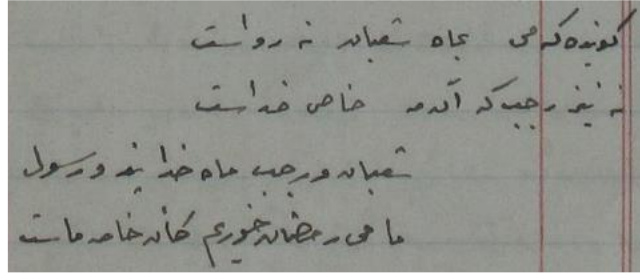 گویند که می بماه شعبان نه رواست
نه نیز رجب که آن مه خاص خداست
شعبان و رجب ماه خدایند و رسول
ما می رمضان خوریم کان خاصه ماست